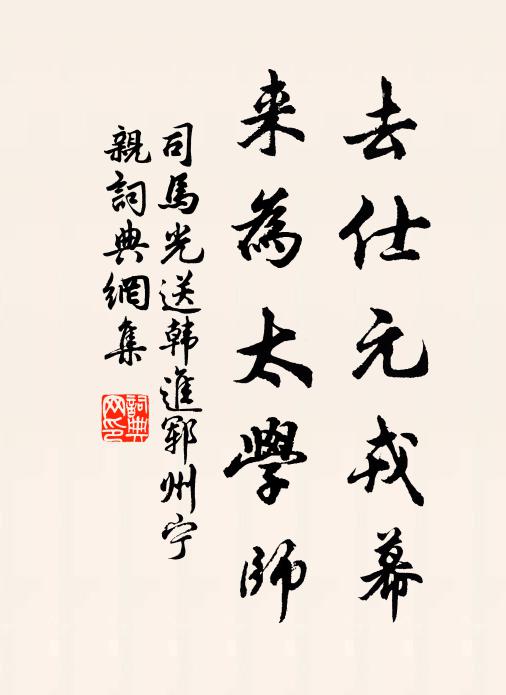 去仕元戎幕
来為太學師
司馬光送韩進郓州宁
親詞典網集
詞典
网印